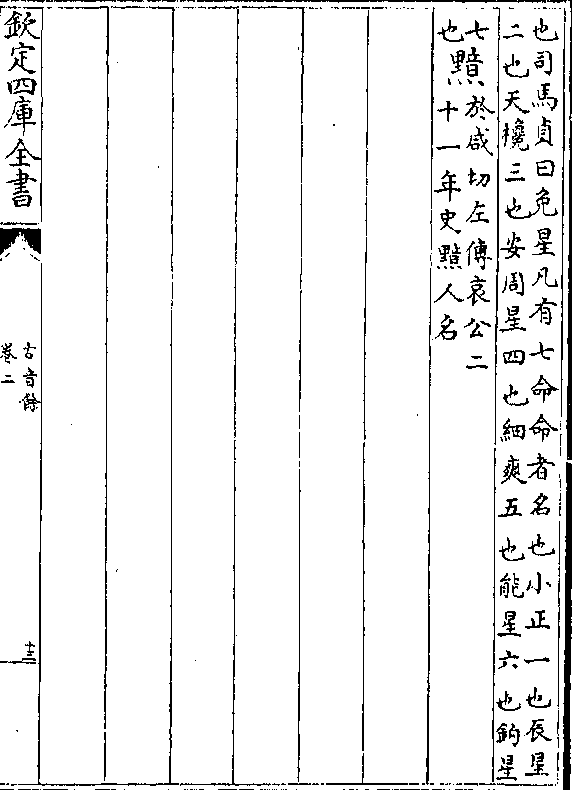 也司馬貞曰免星凡有七命命者名也小正一也辰星
二也天欃三也安周星四也細爽五也能星六也鈎星
七
也
黯
於咸切左傳哀公二
十一年史黯人名
欽定四庫全書
古音餘
卷二
十三